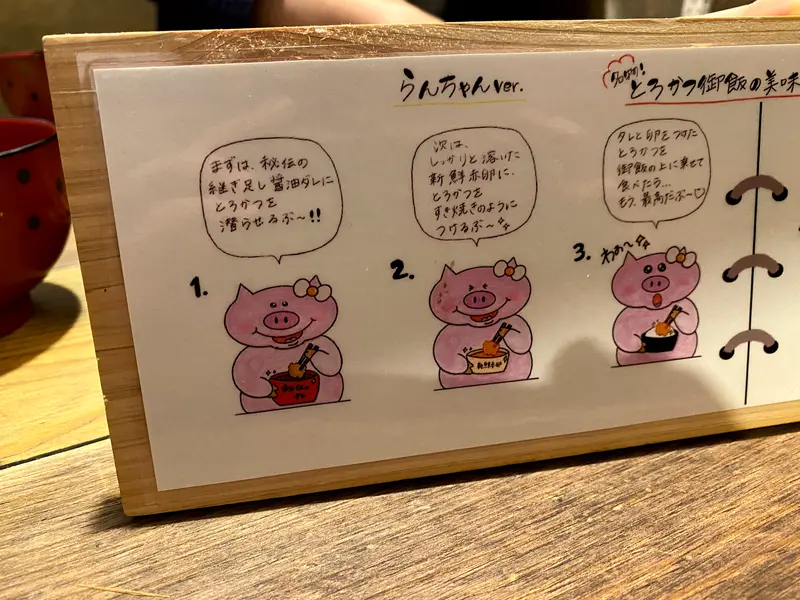 らんちゃんver.
とろかつ御飯の美味
まずは、秘伝の
継ぎ足し醤油ダレに
とろかつを
潜らせるぶ〜!!
1.
次は、
しっかりと溶いた
新鮮赤卵に、
とろかつを
すき焼きのように
つけるぶ〜
2.
タレと卵をつけた
とろかつを
御飯の上に乗せて
食べたら...
もう、最高だぶ〜♡
3.
わぁ〜